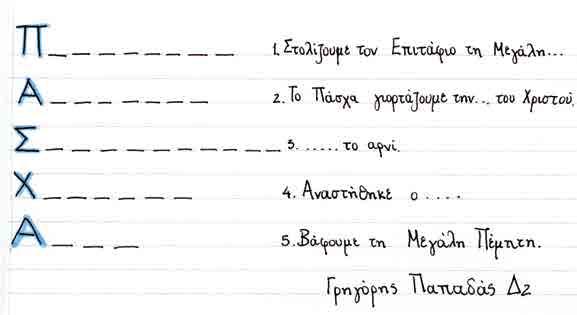 Π_ _ _ _ _ _ _ _ 1. Στολίζουμε τον Επιτάφιο τη Μεγάλη...
Α_ _ _ _ _ _ _ 2. Το Πάσχα γιορτάζουμε την... του Χριστού.
Σ_ _ _ _ _ _ _ _ _ _ _ 3. ..... το αρνί.
Χ_ _ _ _ _ _ 4. Αναστήθηκε ο ....
Α_ _ _ 5. Βάφουμε τη Μεγάλη Πέμπτη.
Γρηγόρης Παπαδάς Δ2